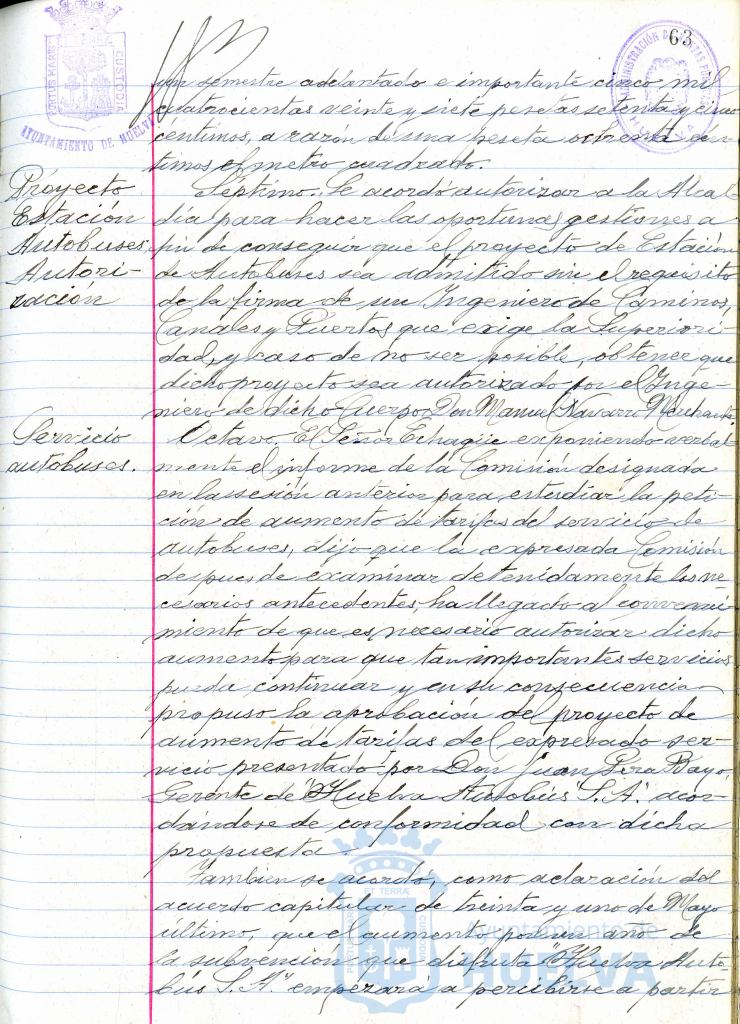 63
PORTUS MARIS CUSTODIA
AYUNTAMIENTO DE HUELVA
un semestre adelantado e importante cinco mil
cuatrocientas veinte y siete pesetas setenta y cinco
céntimos, a razón de una peseta ochenta cén-
timos el metro cuadrado.
Proyecto
Estación
Autobuses.
Autori-
zación
Séptimo. Se acordó autorizar a la Alcal-
día para hacer las oportunas gestiones a
fin de conseguir que el proyecto de Estación
de Autobuses sea admitido sin el requisito
de la firma de un Ingeniero de Caminos,
Canales y Puertos que exige la Superiori-
dad, y caso de no ser posible, obtener que
dicho proyecto sea autorizado por el Inge-
niero de dicho Cuerpo, Don Manuel Navarro
Servicio
autobuses.
Octavo. El Señor Echagüe exponiendo verbal-
mente el informe de la Comisión designada
en la sesión anterior para estudiar la peti-
ción de aumento de tarifas del servicio de
autobuses, dijo que la expresada Comisión
despues de examinar detenidamente los ne-
cesarios antecedentes, ha llegado al convenci-
miento de que es necesario autorizar dicho
aumento para que tan importantes servicios
pueda continuar y en su consecuencia
propuso la aprobación del proyecto de
aumento de tarifas del expresado ser-
vicio presentado por Don Juan Pera Bayo,
Gerente de "Huelva Autobús S.A." acor-
dándose de conformidad con dicha
propuesta.
Tambien se acordó, como aclaración del
acuerdo capitular de treinta y uno de Mayo
último, que el aumento por un año de
la subvención que disfruta "Huelva Auto-
bús S.A." empezará a percibirse a partir
Ayuntamiento de
HUELVA